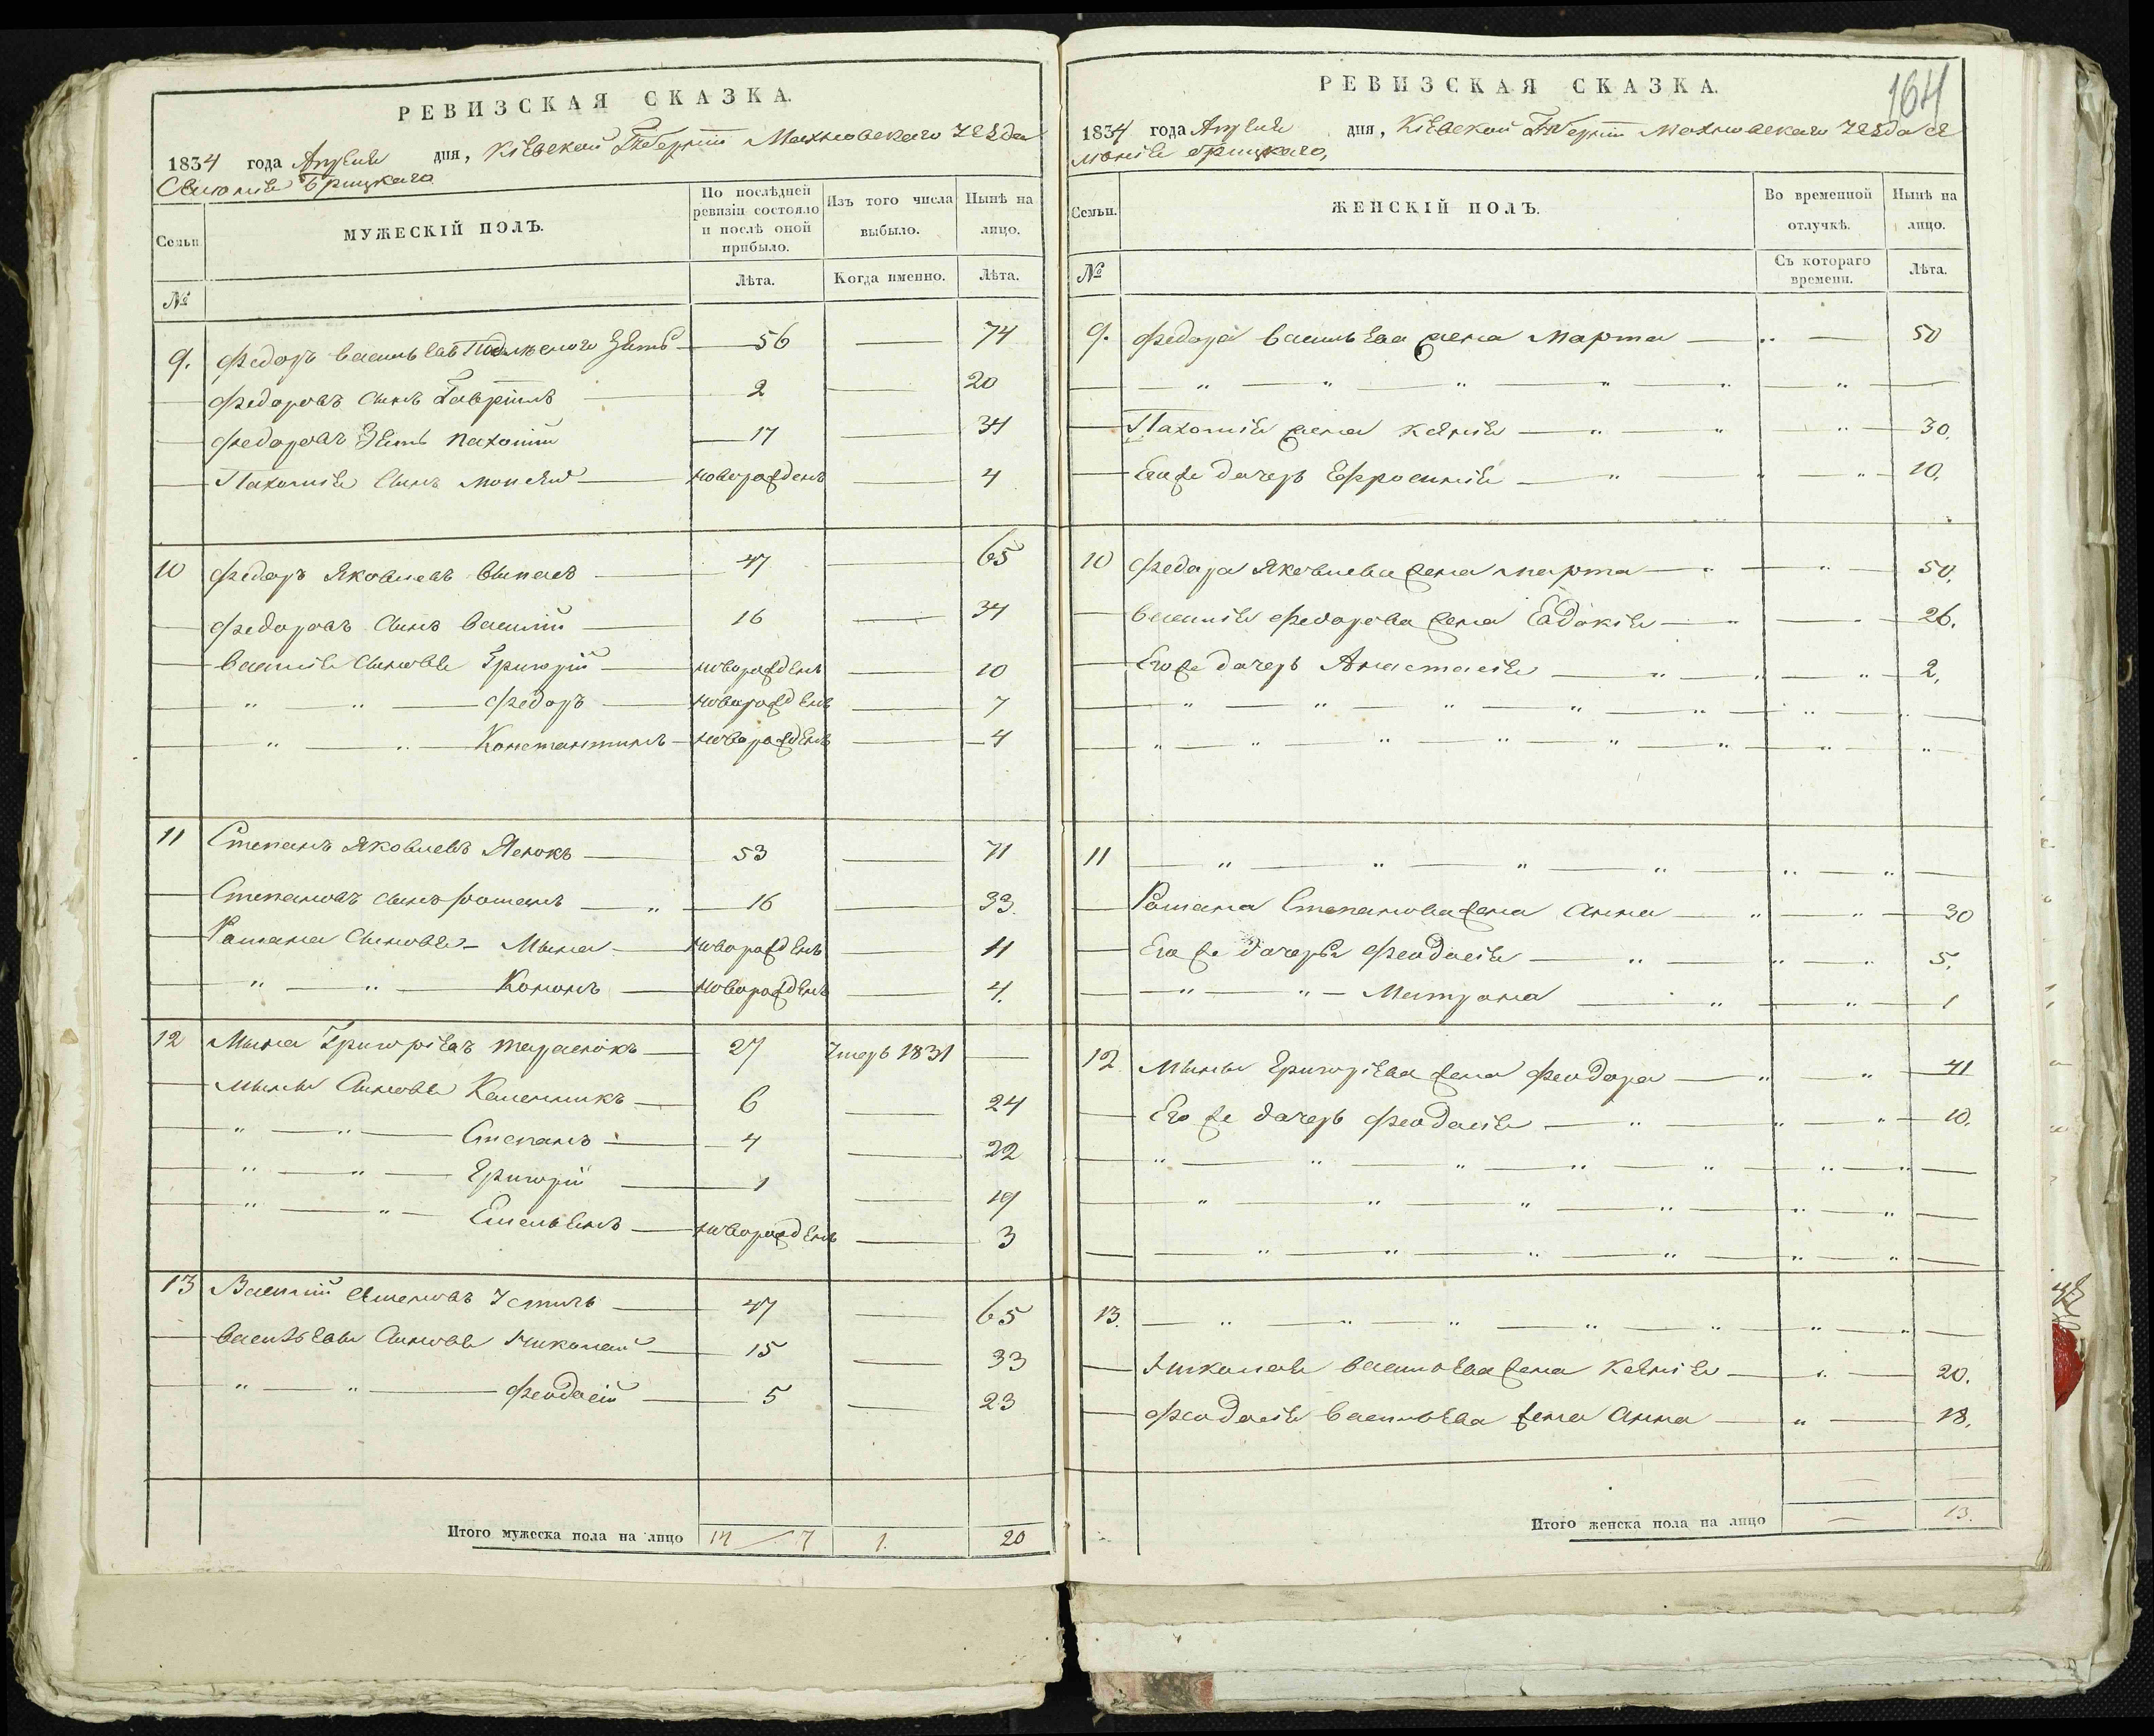 РЕВИЗСКАЯ СКАЗКА.
1834 года Апреля дня, Кіевской Губерніи Махновскаго Уезда
Селенія Брицкаго
Семьи
МУЖЕСКІЙ ПОЛЪ.
По послѣдней ревизіи состояло и послѣ оной прибыло.
Изъ того числа выбыло.
Нынѣ на лицо.
№ Лѣта. Когда именно. Лѣта.
9. Федоръ Васильевъ зять 56 — 74
Федоровъ сынъ Гавріилъ 2 — 20
Федоровъ зять Пахомій 17 — 34
Пахомія сынъ Моисей новорожденъ — 4
10 Федоръ Яковлевъ 47 — 65
Федоровъ сынъ Василій 16 — 34
Василія сыновья Григорій новорожденъ — 10
" " Федоръ новорожденъ — 7
" " Константинъ новорожденъ — 4
11 Степанъ Яковлевъ 53 — 71
Степановъ сынъ Романъ " 16 — 33.
Романа сыновья Мына новорожденъ — 11
" " Кононъ новорожденъ — 4.
12 Мына Григоріевъ Тарасюкъ 27 Умеръ 1831 —
Мыны сыновья Каленникъ 6 — 24
" " Степанъ 4 — 22
" " Григорій 1 — 19
" " Емельянъ новорожденъ — 3
13 Василій 47 — 65
Васильевы сыновья Николай 15 — 33
" " Феодосій 5 — 23
Итого мужеска пола на лицо 14 / 7 1. 20
164
РЕВИЗСКАЯ СКАЗКА.
1834 года Апреля дня, Кіевской Губерніи Махновскаго Уезда Се
ленія Брицкаго,
Семьи.
ЖЕНСКІЙ ПОЛЪ.
Во временной отлучкѣ.
Нынѣ на лицо.
№ Съ котораго времени. Лѣта.
9. Федора Васильева жена Марта — " — 50
— " — " — " — " — " — " —
Пахомія жена Ксенія — " — " — " — 30.
Его же дочерь Ефросинія — " — " — " — 10.
10 Федора Яковлева жена Марта — " — " — 50.
Василія Федорова жена Евдокія — " — " — 26.
Его же дочерь Анастасія — " — " — " — 2.
— " — " — " — " — " — " — " —
" — " — " — " — " — " — " — "
11 — " — " — " — " — " — " —
Романа Степанова жена Анна — " — " — 30
Его же дочерьи Феодосія — " — " — " 5.
— " — " — Матрона — " — " — 1
12. Мыны Григоріева жена Феодора — " — " — 41
Его же дочерь Феодосія — " — " — " — 10.
" — " — " — " — " — " — " —
— " — " — " — " — " — " —
— " — " — " — " — " — " —
13. — " — " — " — " — " — " — " —
Николая Васильева жена Ксенія — " — 20.
Феодосія Васильева жена Анна — " — 18.
Итого женска пола на лицо — 13.